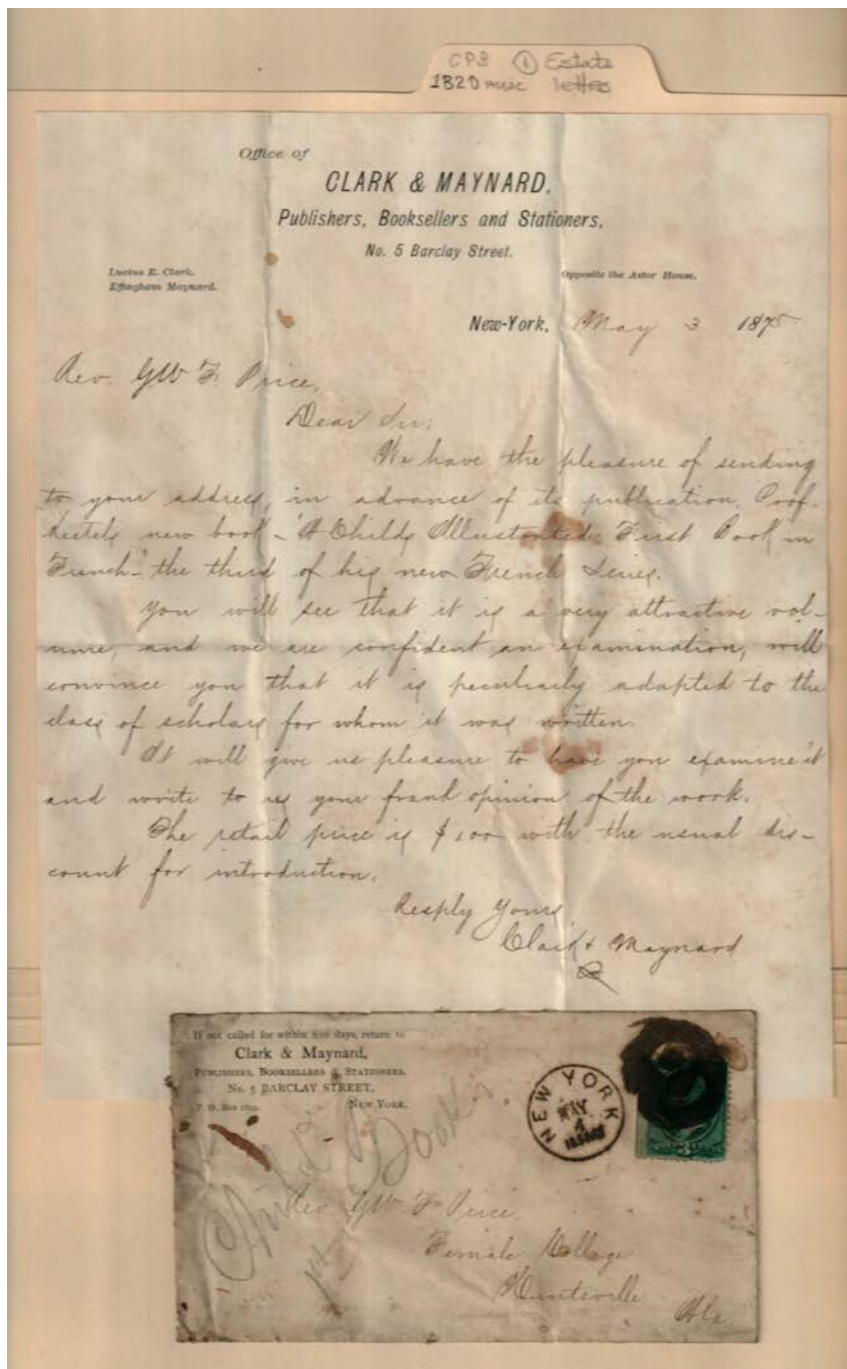 CPB ① Estate
1820 misc letters
Office of
CLARK & MAYNARD,
Publishers, Booksellers and Stationers,
No. 5 Barclay Street.
Lucius E. Clark.
Effingham Maynard.
Opposite the Astor House.
New-York, May 3 1875
Rev. GW F. Price,
Dear Sir:
We have the pleasure of sending
to your address, in advance of its publication, Prof.
Keetels new book - "A Childs Illustrated First Book in
French" - the third of his new French Series.
You will see that it is a very attractive vol-
ume, and we are confident an examination, will
convince you that it is peculiarly adapted to the
class of scholars for whom it was written.
It will give us pleasure to have you examine it
and write to us your frank opinion of the work.
The retail price is $1.00 with the usual dis-
count for introduction.
Resply Yours,
Clark & Maynard
If not called for within five days, return to
Clark & Maynard,
PUBLISHERS, BOOKSELLERS & STATIONERS,
No. 5 BARCLAY STREET,
P. O. Box NEW YORK.
NEW YORK
MAY
4
Child's
1st Book
Rev GW F Price
Female College
Huntsville
Ala.